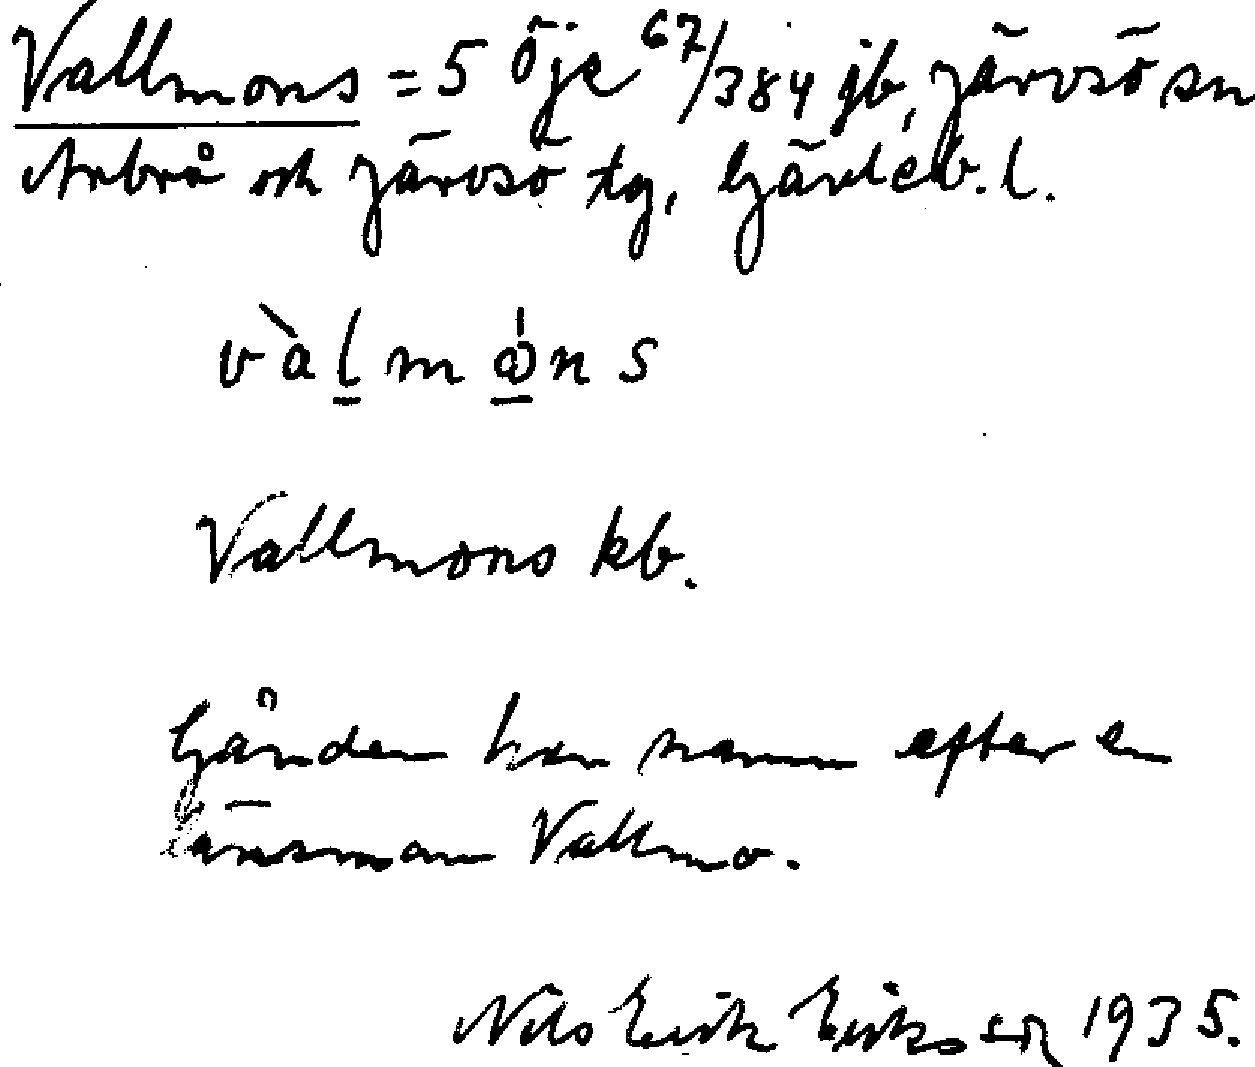 Vallmons = 5 Öje 67/384 jb, Järvsö sn
Arbrå och Järvsö tg, Gävleb. l.
vàlmωns
Vallmons kb.
Gården har namn efter en
länsman Vallmo.
Nils Erik Eriksson 1935.